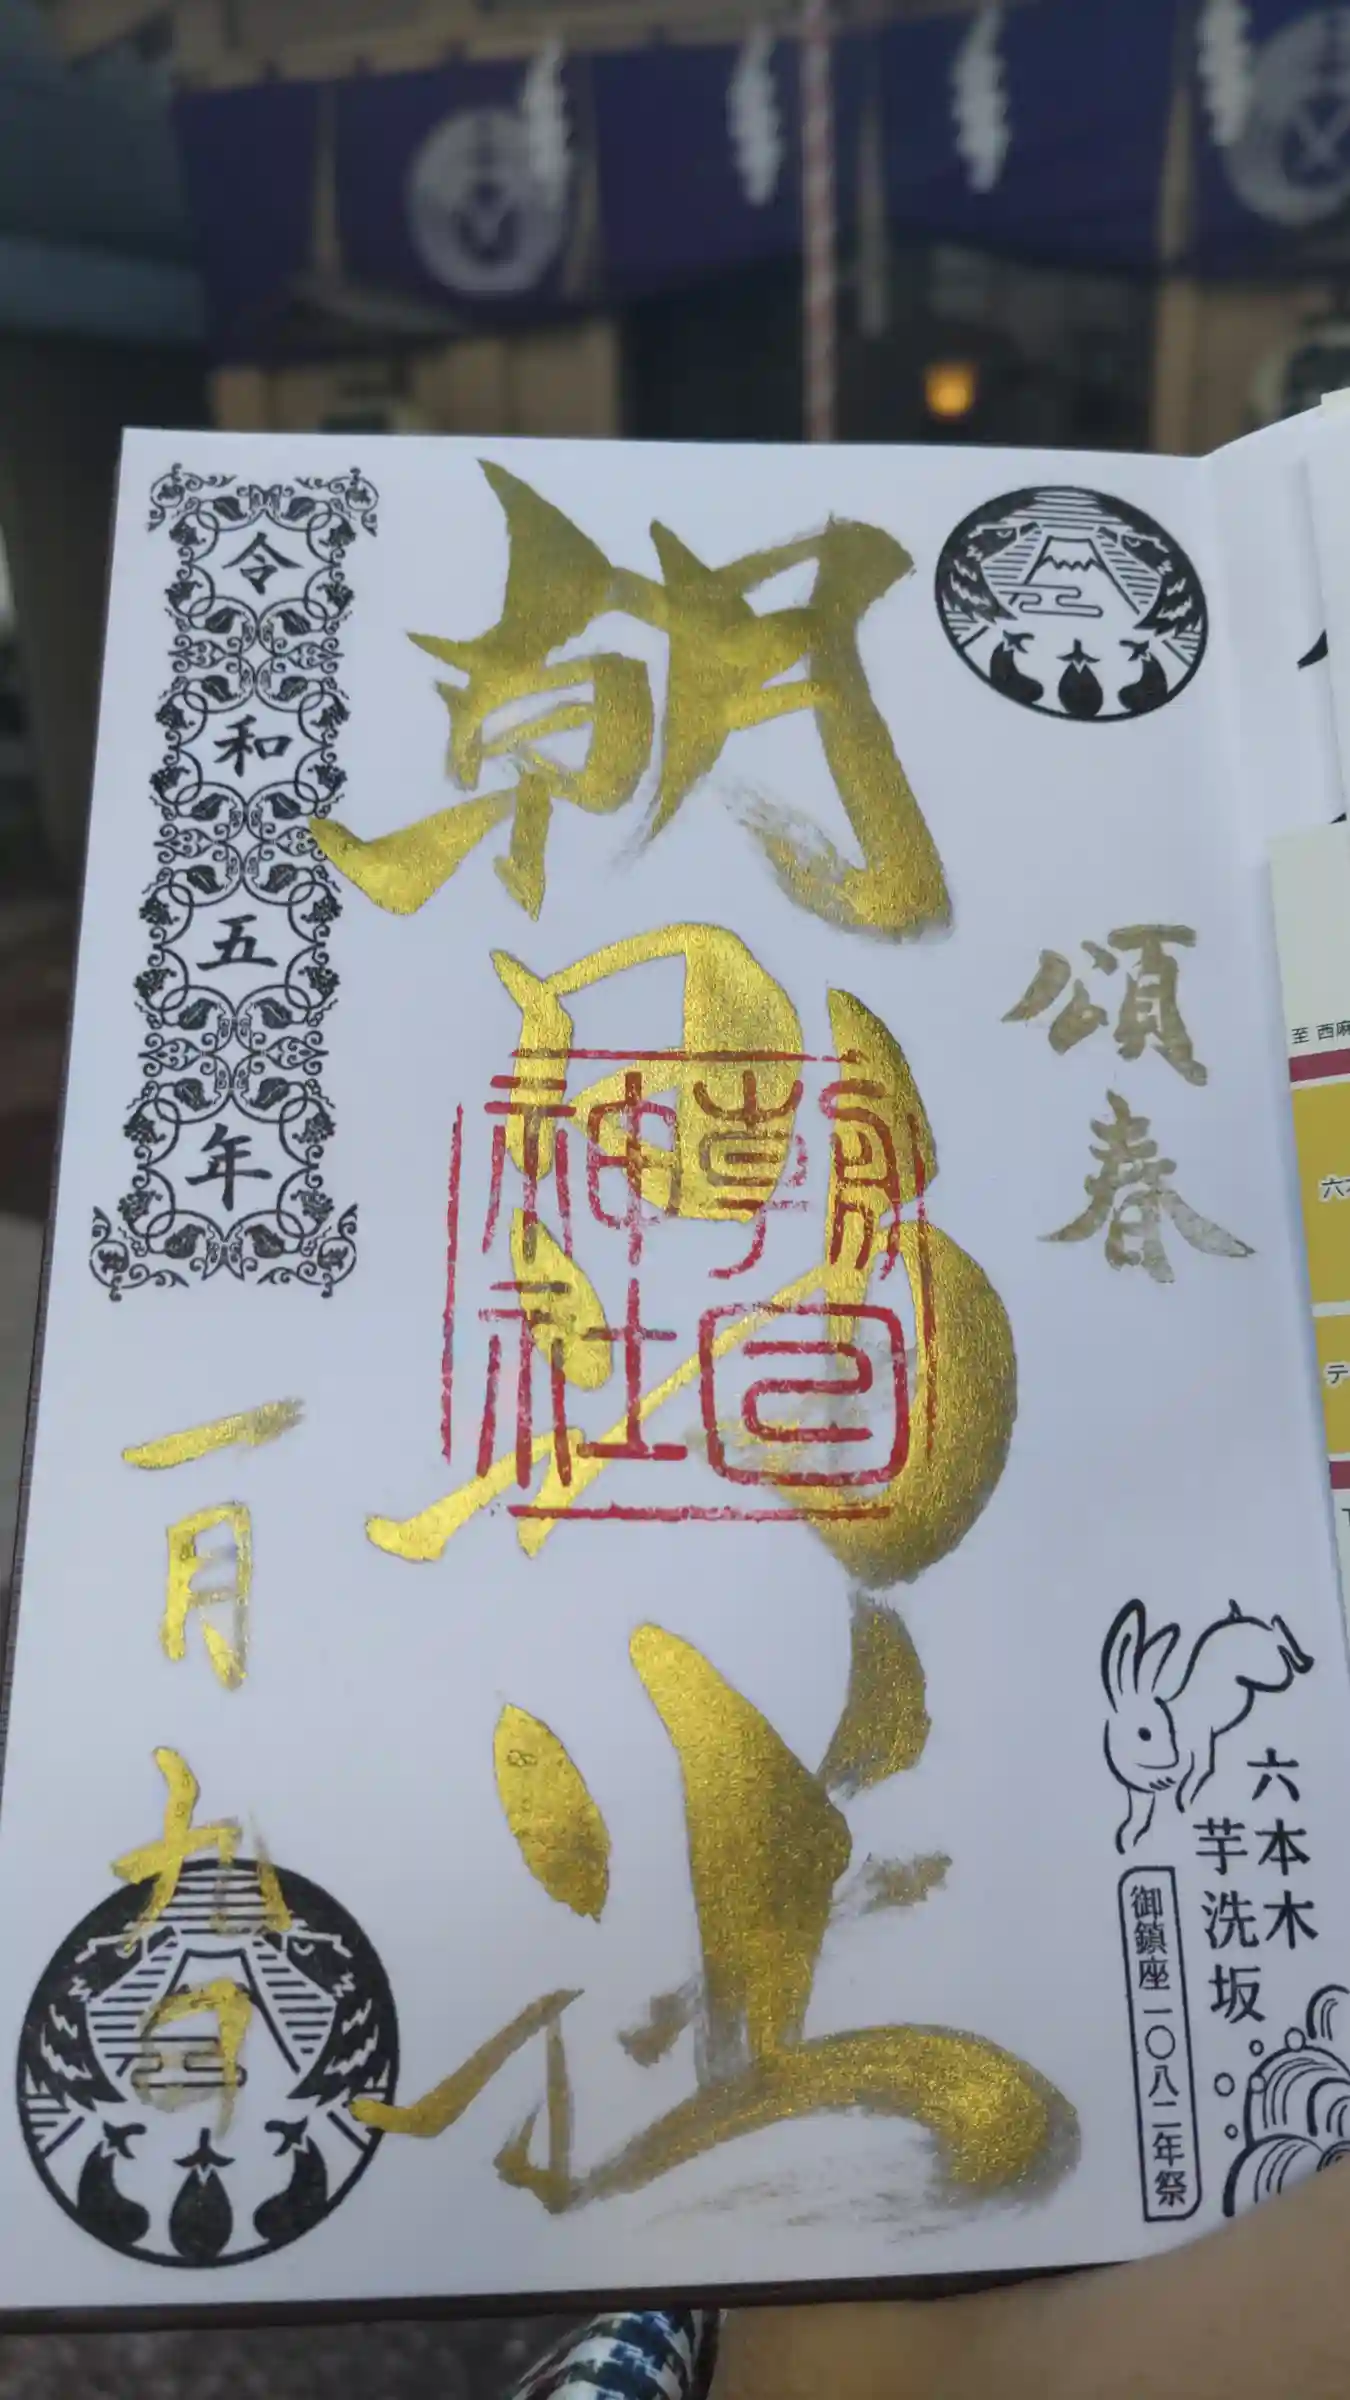 頌春
六本木
芋洗坂
御鎮座一〇八二年祭
朝日神社
朝日
神社
令和五年
一月九日
至 西麻